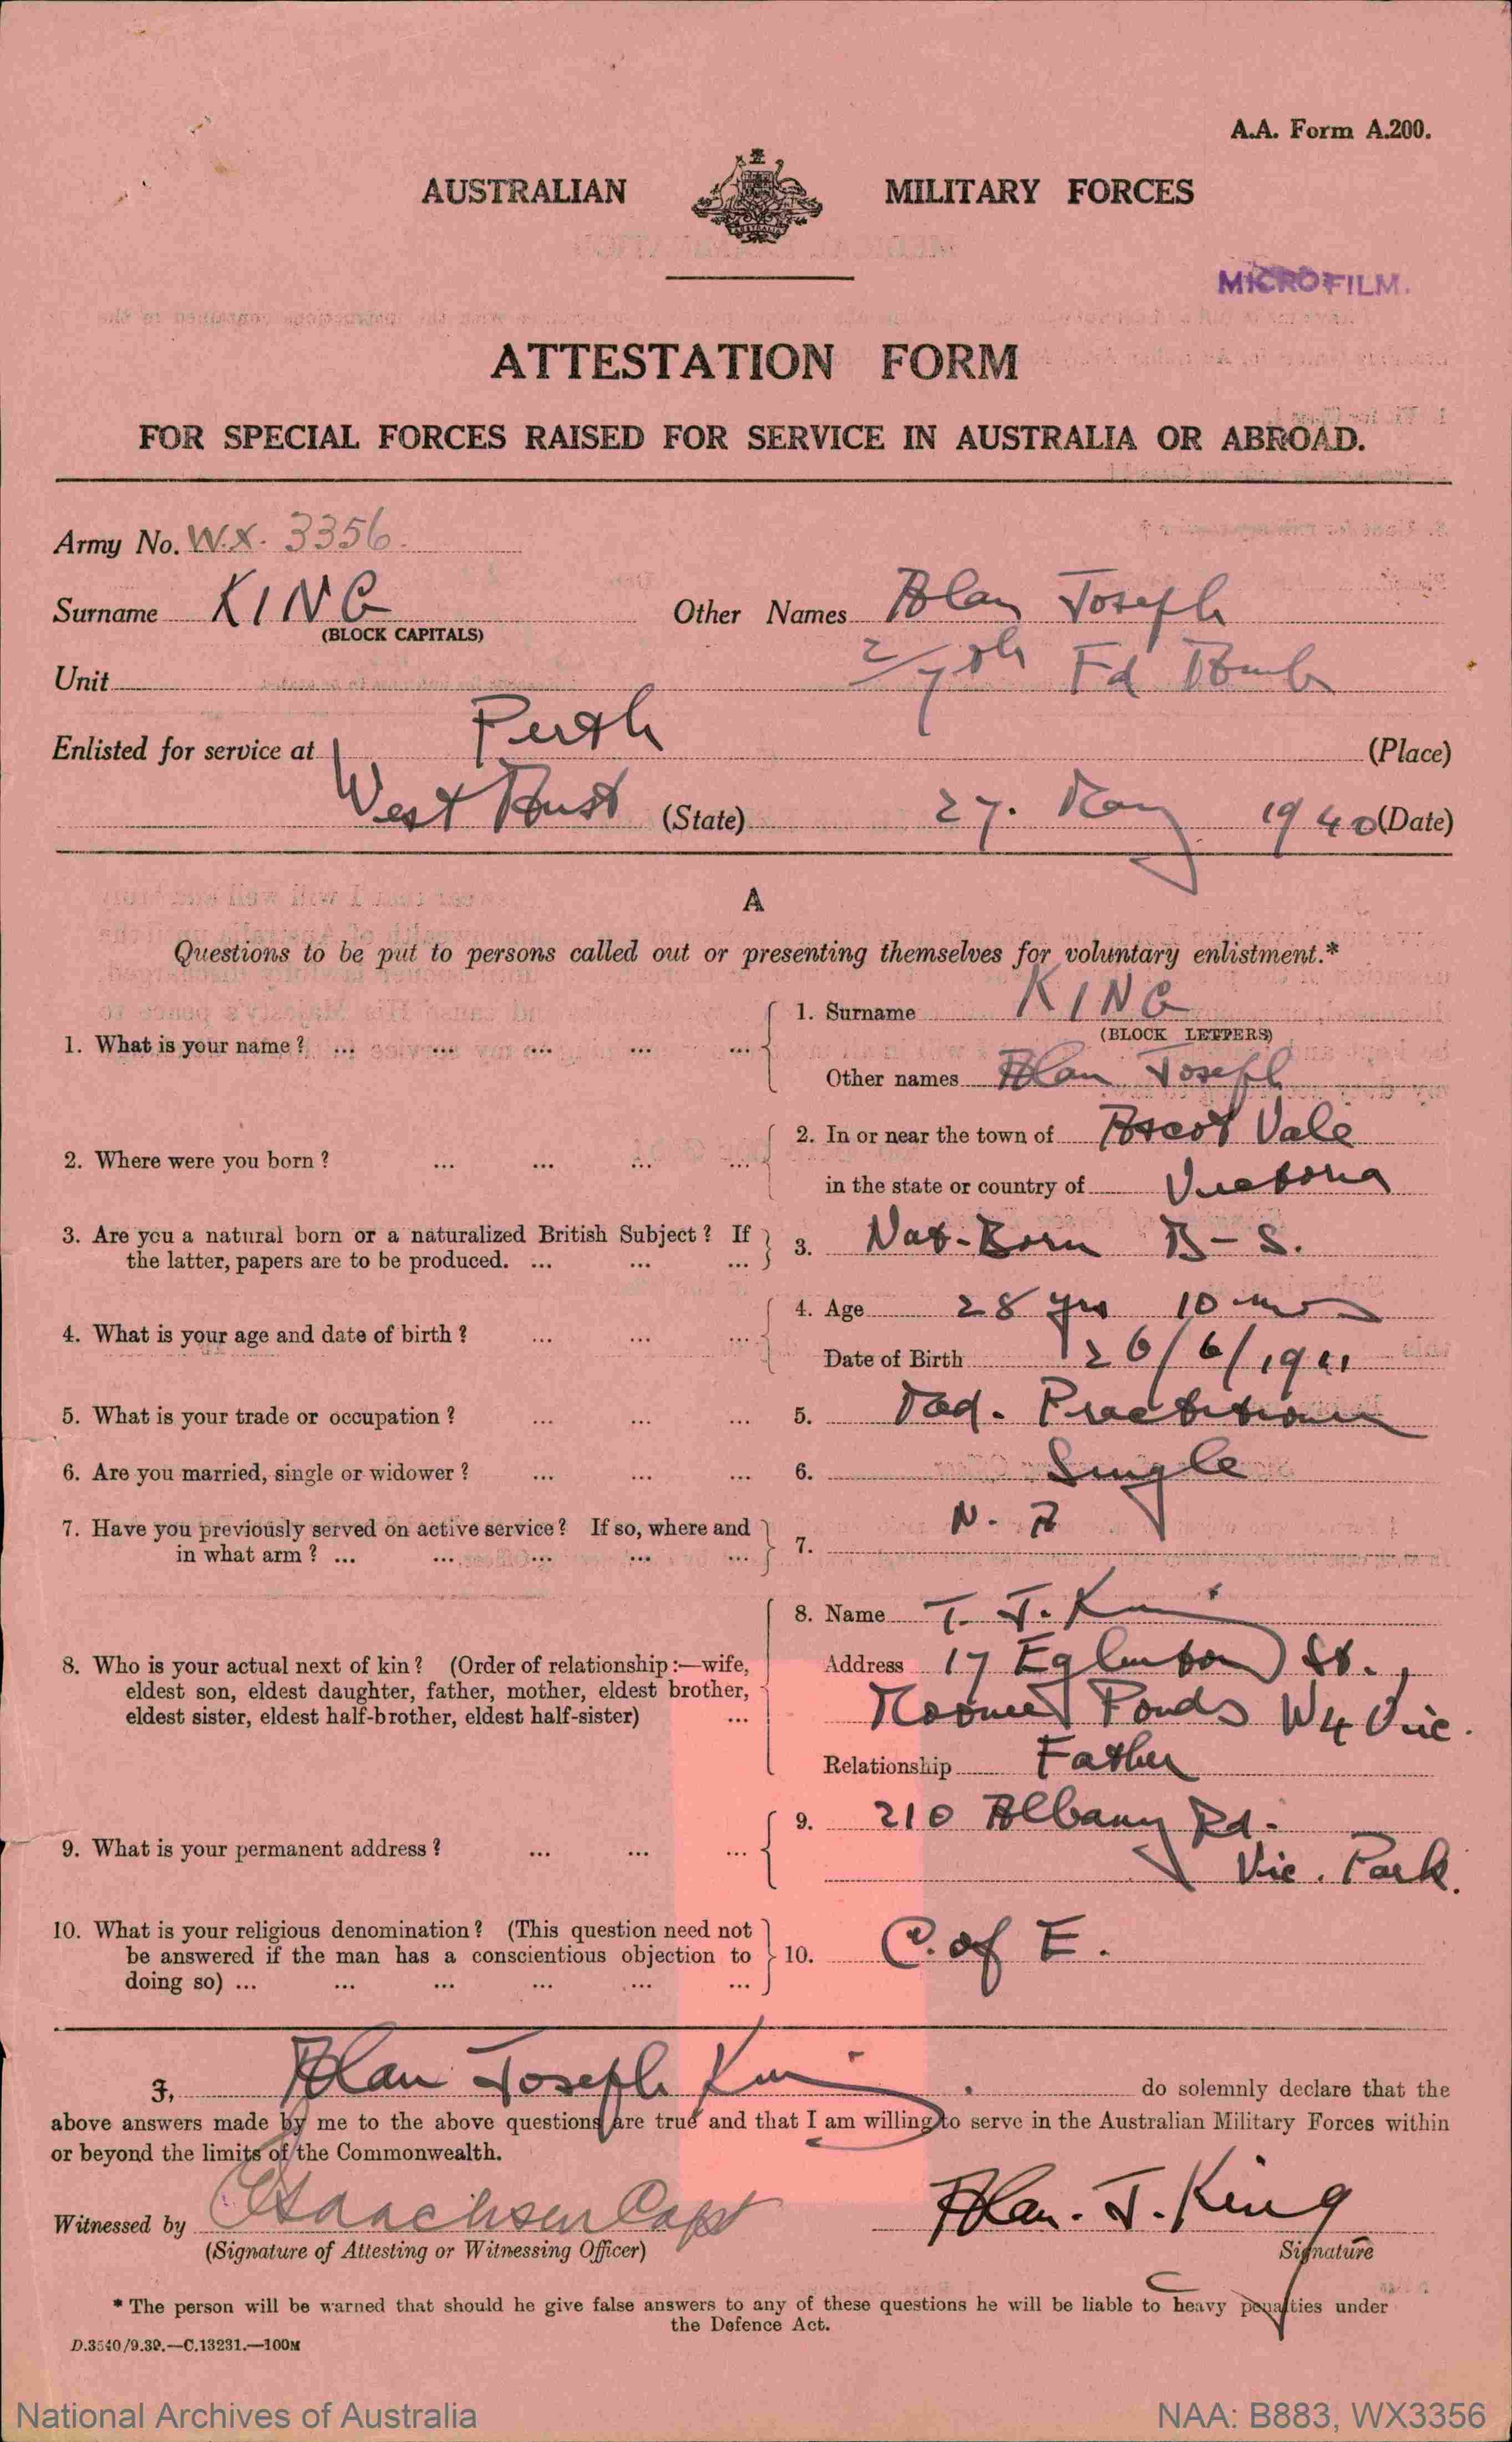 A.A. Form A.200.
AUSTRALIAN MILITARY FORCES
MICROFILM.
ATTESTATION FORM
FOR SPECIAL FORCES RAISED FOR SERVICE IN AUSTRALIA OR ABROAD.
Army No. W.X. 3356
Surname KING Other Names Alan Joseph
(BLOCK CAPITALS)
Unit 2/7th Fd Amb
Enlisted for service at Perth (Place)
West Aust (State) 27. May 1940 (Date)
A
Questions to be put to persons called out or presenting themselves for voluntary enlistment.*
1. What is your name? ... ... ... ... ... 1. Surname KING
(BLOCK LETTERS)
Other names Alan Joseph
2. Where were you born? ... ... ... ... 2. In or near the town of Ascot Vale
in the state or country of Victoria
3. Are you a natural born or a naturalized British Subject? If 3. Nat-Born B-S.
the latter, papers are to be produced. ... ... ...
4. What is your age and date of birth? ... ... ... 4. Age 28 yrs 10 mos
Date of Birth 26/6/1911
5. What is your trade or occupation? ... ... ... 5. Med. Practitioner
6. Are you married, single or widower? ... ... ... 6. Single
7. Have you previously served on active service? If so, where and 7. N. A
in what arm? ... ... ... ... ...
8. Name T. J. King
8. Who is your actual next of kin? (Order of relationship:—wife, Address 17 Eglinton St.,
eldest son, eldest daughter, father, mother, eldest brother,
eldest sister, eldest half-brother, eldest half-sister) ... Moonee Ponds W4 Vic.
Relationship Father
9. What is your permanent address? ... ... ... 9. 210 Albany Rd.
Vic. Park.
10. What is your religious denomination? (This question need not
be answered if the man has a conscientious objection to 10. C. of E.
doing so) ... ... ... ... ... ...
I, Alan Joseph King do solemnly declare that the
above answers made by me to the above questions are true and that I am willing to serve in the Australian Military Forces within
or beyond the limits of the Commonwealth.
Witnessed by Capt Alan. J. King
(Signature of Attesting or Witnessing Officer) Signature
* The person will be warned that should he give false answers to any of these questions he will be liable to heavy penalties under
the Defence Act.
D.3540/9.39.—C.13231.—100M
National Archives of Australia NAA: B883, WX3356